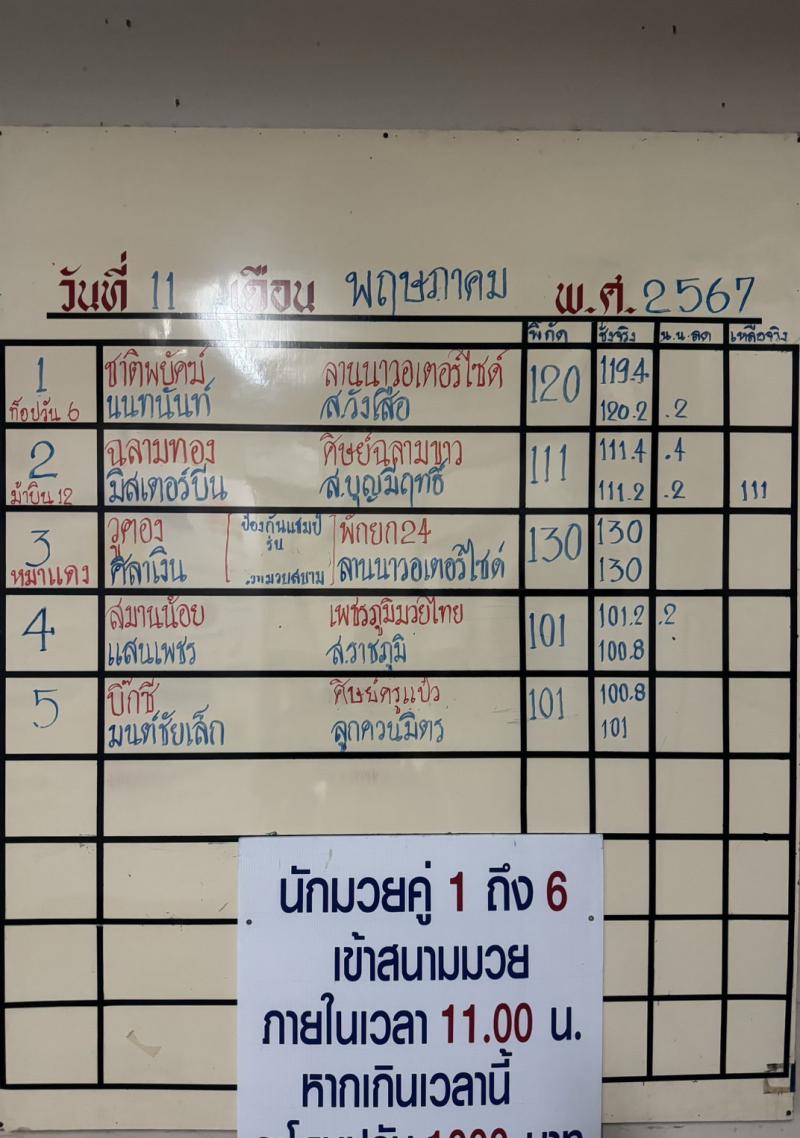 วันที่ 11 เดือน พฤษภาคม พ.ศ. 2567
พิกัด ชั่งจริง น.น.ลด เหลือจริง
1 ชาติพยัคฆ์ ลานนาวอเตอร์ไซด์ 120 119.4
ท็อปวัน 6 นนทนันท์ ส.วังเสือ 120.2 .2
2 ฉลามทอง ศิษย์ฉลามขาว 111 111.4 .4
ม้าบิน 12 มิสเตอร์บีน ส.บุญมีฤทธิ์ 111.2 .2 111
3 วูคอง ป้องกันแชมป์ รุ่น พักยก24 130 130
หมาแดง ศิลาเงิน ลานนาวอเตอร์ไซด์ 130
4 สมานน้อย เพชรภูมิมวยไทย 101 101.2 .2
แสนเพชร ส.ราชภูมิ 100.8
5 บิ๊กซี ศิษย์ครูแป๋ว 101 100.8
มนต์ชัยเล็ก ลูกควนมิตร 101
นักมวยคู่ 1 ถึง 6
เข้าสนามมวย
ภายในเวลา 11.00 น.
หากเกินเวลานี้